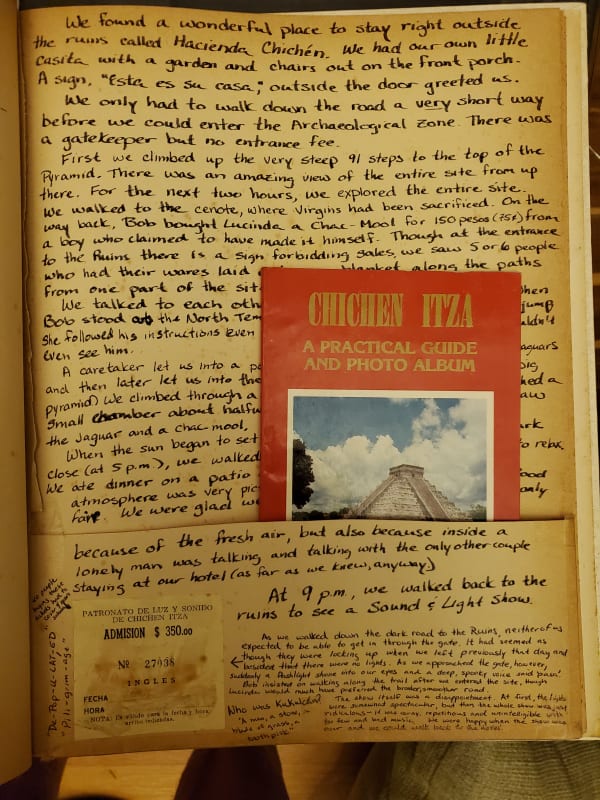 We found a wonderful place to stay right outside
the ruins called Hacienda Chichén. We had our own little
casita with a garden and chairs out on the front porch.
A sign, "Esta es su casa," outside the door greeted us.
We only had to walk down the road a very short way
before we could enter the Archaeological Zone. There was
a gatekeeper but no entrance fee.
First we climbed up the very steep 91 steps to the top of the
Pyramid. There was an amazing view of the entire site from up
there. For the next two hours, we explored the entire site.
We walked to the cenote, where Virgins had been sacrificed. On the
way back, Bob bought Lucinda a Chac-Mool for 150 pesos (75¢) from
a boy who claimed to have made it himself. Though at the entrance
to the Ruins there is a sign forbidding sales, we saw 5 or 6 people
who had their wares laid blanket along the paths
from one part of the sit
We talked to each oth When
Bob stood the North Tem jump
She followed his instructions even
even see him.
A caretaker let us into a jaguars
and then later let us into the big
pyramid) We climbed through a
small chamber about halfw
the Jaguar and a Chac-mool,
When the sun began to set
close (at 5 p.m.), we walked to relax.
We ate dinner on a patio
atmosphere was very pic only
fair. We were glad
CHICHEN ITZA
A PRACTICAL GUIDE
AND PHOTO ALBUM
because of the fresh air, but also because inside a
lonely man was talking and talking with the only other couple
staying at our hotel (as far as we knew, anyway)
At 9 p.m., we walked back to the
ruins to see a Sound & Light Show.
PATRONATO DE LUZ Y SONIDO
DE CHICHEN ITZA
ADMISION $ 350.00
Nº 27038
INGLES
FECHA
HORA
NOTA: Es válido para la fecha y hora
arriba indicadas.
"Pil-grim-age"
As we walked down the dark road to the Ruins, neither of us
expected to be able to get in through the gate. It had seemed as
though they were locking up when we left previously that day and
besides that there were no lights. As we approached the gate, however,
suddenly a flashlight shone into our eyes and a deep, spooky voice said
Bob insisted on walking along the trail after we entered the site, though
Lucinda would much have preferred the broader, smoother road.
The show itself was a disappointment. At first, the lights
were somewhat spectacular, but then the whole show was just
ridiculous - it was repetitious and unintelligible with
too few and bad music. We were happy when the show was
over and we could walk back to the hotel.
Who was Kukulcan?
"A man, a stone, a
blade of grass, a
toothpick"